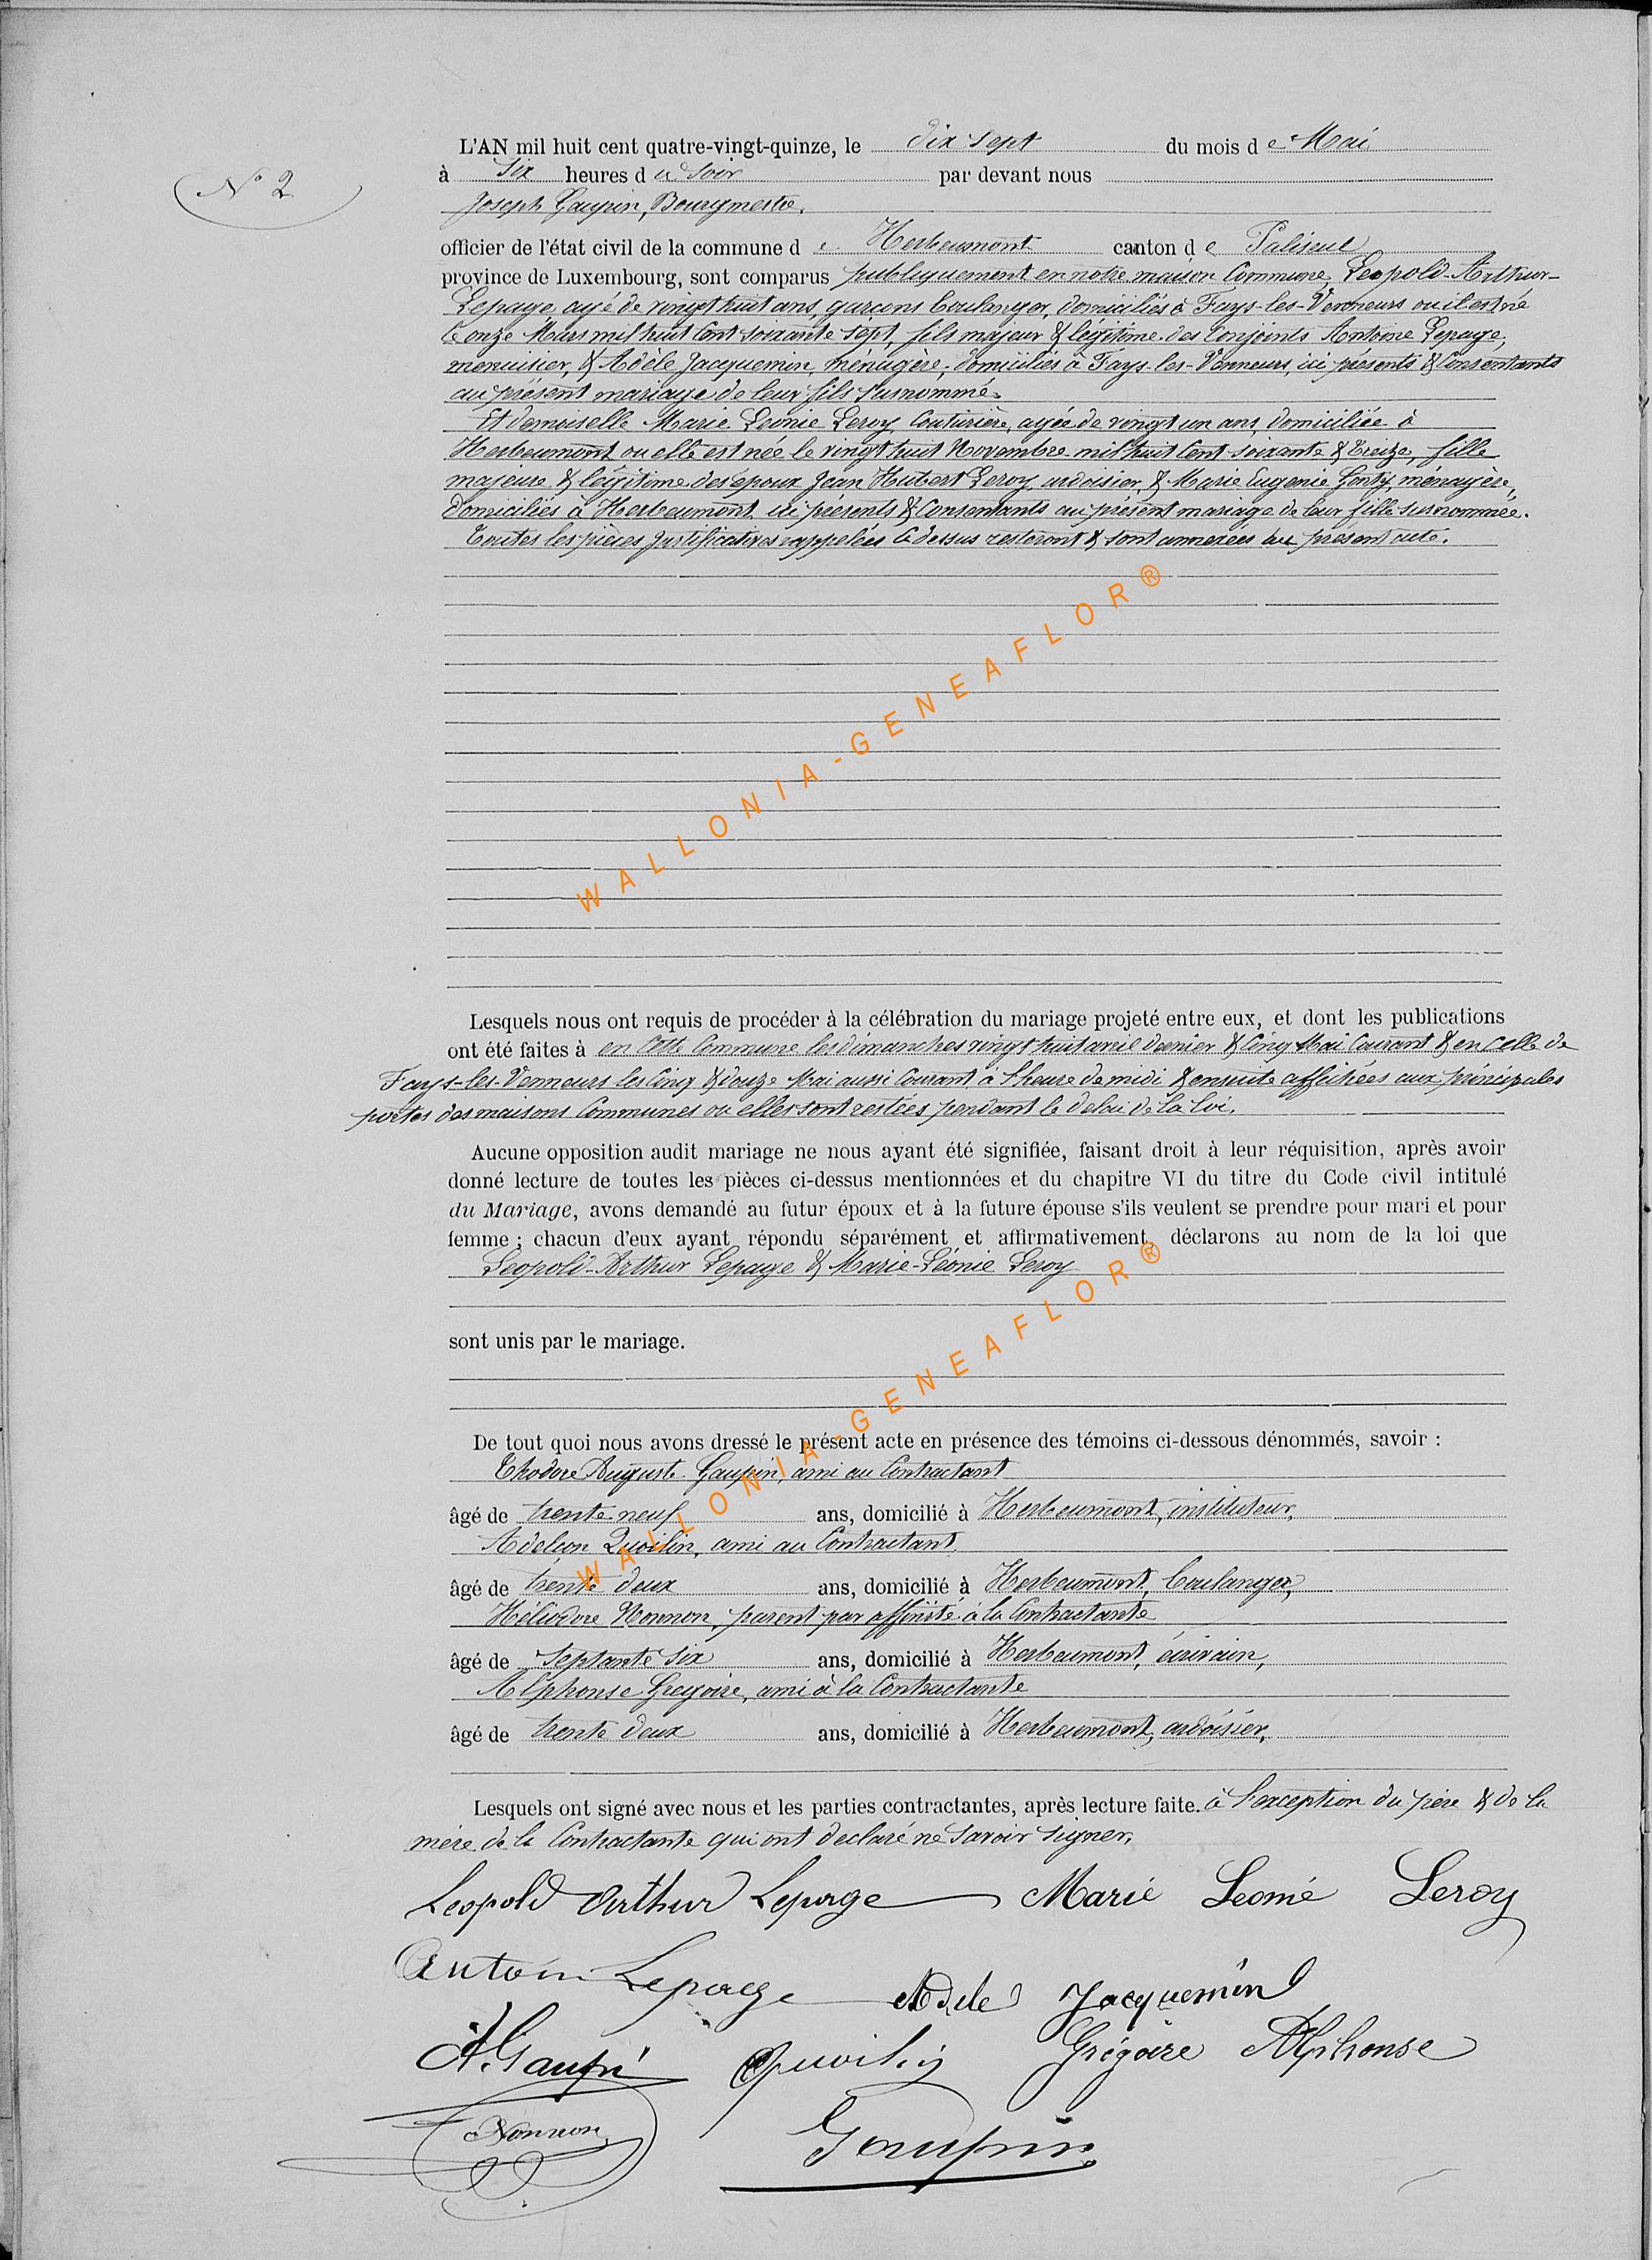 L'AN mil huit cent quatre-vingt-quinze, le dix sept du mois de Mai
N° 2
à six heures du soir par devant nous
Joseph Gaupin, Bourgmestre,
officier de l'état civil de la commune de Herbeumont canton de Paliseul
province de Luxembourg, sont comparus publiquement en notre maison Commune, Leopold-Arthur-
Lepage, agé de vingt huit ans, garçons boulanger, domiciliés à Fays-les-Veneurs ou il est né
le onze Mars mil huit Cent soixante sept, fils majeur & légitime des Conjoints Antoine Lepage,
menuisier, & Adèle Jacquemin, ménagère, domiciliés à Fays-les-Venneurs, ici présents & Consentants
au présent mariage de leur fils susnommé.
Et demoiselle Marie Leonie Leroy, Couturière, agée de vingt un ans, domiciliée à
Herbeumont ou elle est née le vingt huit Novembre mil huit Cent soixante & treize, fille
majeure & légitime des époux Jean Hubert Leroy, ardoisier, & Marie Eugenie Gonty, ménagère,
domiciliés à Herbeumont, ici présents & Consentants au présent mariage de leur fille susnommée.
Toutes les pièces justificatives rappelées ci dessus resteront & sont annexées au présent acte.
WALLONIA-GENEAFLOR®
Lesquels nous ont requis de procéder à la célébration du mariage projeté entre eux, et dont les publications
ont été faites à en cette Commune les dimanches vingt huit avril dernier & Cinq Mai Courant & en celle de
Fays-les-Venneurs les Cinq & douze Mai aussi Courant à l'heure de midi & ensuite affichées aux principales
portes des maisons Communes ou elles sont restées pendant le délai de la loi.
Aucune opposition audit mariage ne nous ayant été signifiée, faisant droit à leur réquisition, après avoir
donné lecture de toutes les pièces ci-dessus mentionnées et du chapitre VI du titre du Code civil intitulé
du Mariage, avons demandé au futur époux et à la future épouse s'ils veulent se prendre pour mari et pour
femme ; chacun d'eux ayant répondu séparément et affirmativement, déclarons au nom de la loi que
Leopold-Arthur Lepage & Marie-Léonie Leroy
sont unis par le mariage.
WALLONIA-GENEAFLOR®
De tout quoi nous avons dressé le présent acte en présence des témoins ci-dessous dénommés, savoir :
Thodore Auguste Gaupin, ami au Contractant
âgé de trente neuf ans, domicilié à Herbeumont, instituteur,
Adelson Quoilin, ami au Contractant
âgé de trente deux ans, domicilié à Herbeumont, boulanger,
Héliodore Nonnon, parent par affinité à la Contractante
âgé de septante six ans, domicilié à Herbeumont, écrivain,
Alphonse Gregoire, ami à la Contractante
âgé de trente deux ans, domicilié à Herbeumont, ardoisier,
Lesquels ont signé avec nous et les parties contractantes, après lecture faite. à l'exception du père & de la
mère de la Contractante qui ont déclaré ne savoir signer.
Leopold Arthur Lepage Marie Leonie Leroy
Antoin Lepage Adele Jacquemin
A. Gaupin Quoilin Grégoire Alphonse
Nonnon Gaupin